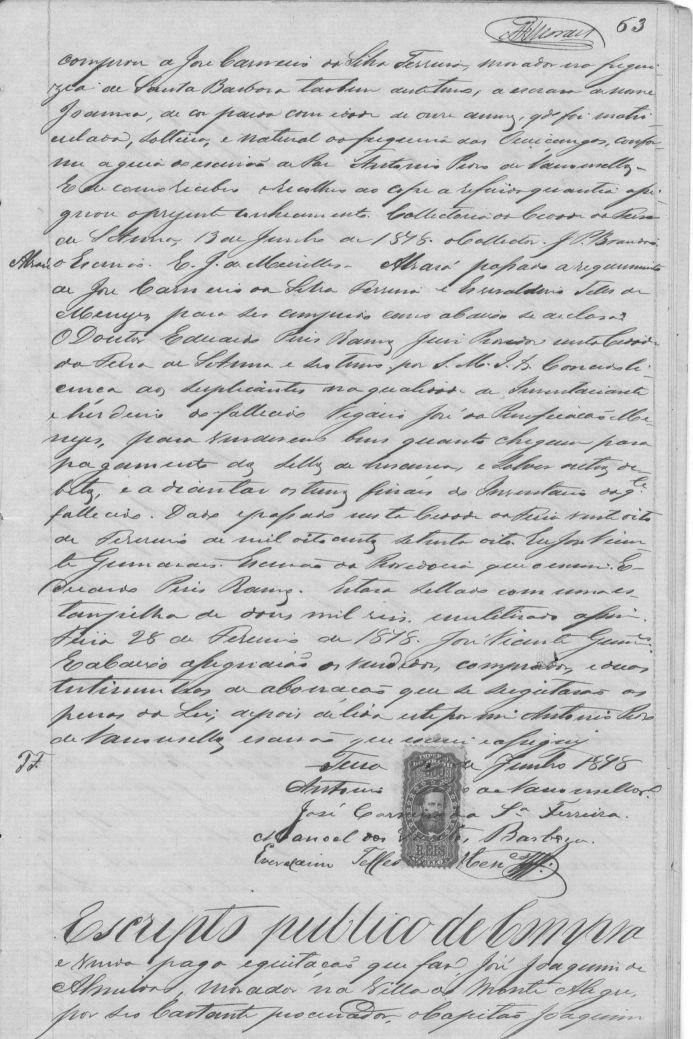 63
comprou a José Carneiro da Silva Ferreira, morador na fregue
zia de Santa Barbara tambem deste termo, a escrava de nome
Joanna, de cor parda com idade de onze annos, q. foi matri
culada, solteira, e natural da freguezia dos confor
me a guia do escrivão de Paz Antonio Pedro de Vasconcellos
E de como recebeu e recolheu ao cofre a referida quantia assi
gnou o presente conhecimento. Collectoria da Cidade da Feira
de S. Anna, 13 de Junho de 1878. o Collector. J. P. Brandão
o Escrivão. E. J. de Meirelles. Alvará passado a requerimento
de José Carneiro da Silva Ferreira e Everaldino Telles de
Menezes para ser cumprido como abaixo se declara
O Doutor Eduardo Pires Ramos Juiz Provedor nesta Cidade
da Feira de S. Anna e seu termo por S. M. I. &. Concede li
cença aos supplicantes na qualidade de Inventariante
e herdeiro do fallecido Vigario José da Purificação Me
nezes, para venderem bens quanto cheguem para
pagamento dos sellos de herança, e solver outros de
bitos, e adiantar os termos finais do Inventario do q.
fallecido. Dado e passado nesta Cidade da Feira vinte oito
de Fevereiro de mil oitocentos setenta oito. Eu José Vicen
te Guimarães Escrivão da Provedoria que o escrevi. E
duardo Pires Ramos. Estava sellado com uma es
tampilha de dous mil reis, inutilizada assim.
Feira 28 de Fevereiro de 1878. José Vicente Guimes
E abaixo assignarão os vendedores, comprador, e duas
testemunhas de abonação que se sujeitarão as
penas da Lei, depois de lida este por mi Antonio Pedro
de Vasconcellos escrivão que escrevi e assignei
Feira de Junho 1878
Antonio de Vasconcellos
José Carneiro da Sª Ferreira.
Manoel dos Barboza
Everaldino Telles Menezes
Escripta publica de Compra
e venda paga e quitação que faz, José Joaquim de
Almeida, morador na Villa de Monte Alegre,
por seu bastante procurador, o Capitão Joaquim